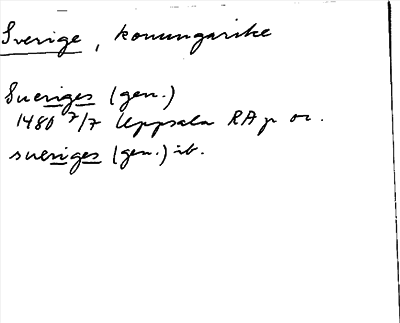 Sverige, konungarike
Sueriges (gen.)
1480 7/7 Uppsala RAp or.
sueriges (gen.) ib.